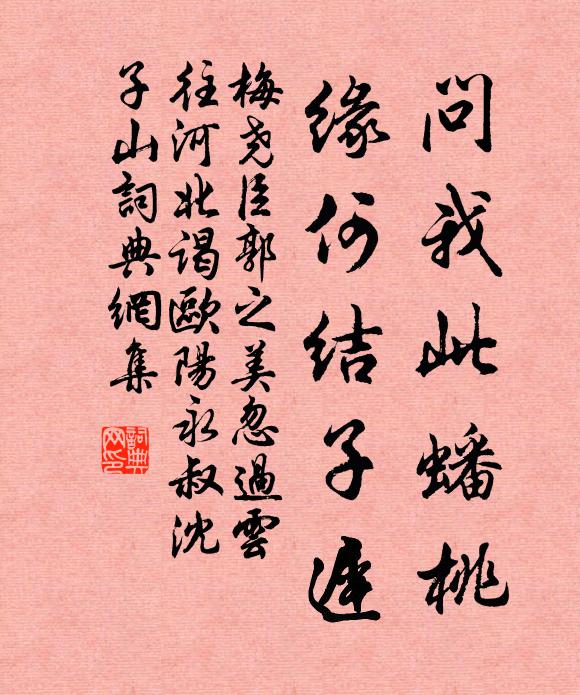 問我此蟠桃
緣何結子遲
梅堯臣郭之美忽過雲
往河北謁歐陽永叔沈
子山詞典網集
詞典網印